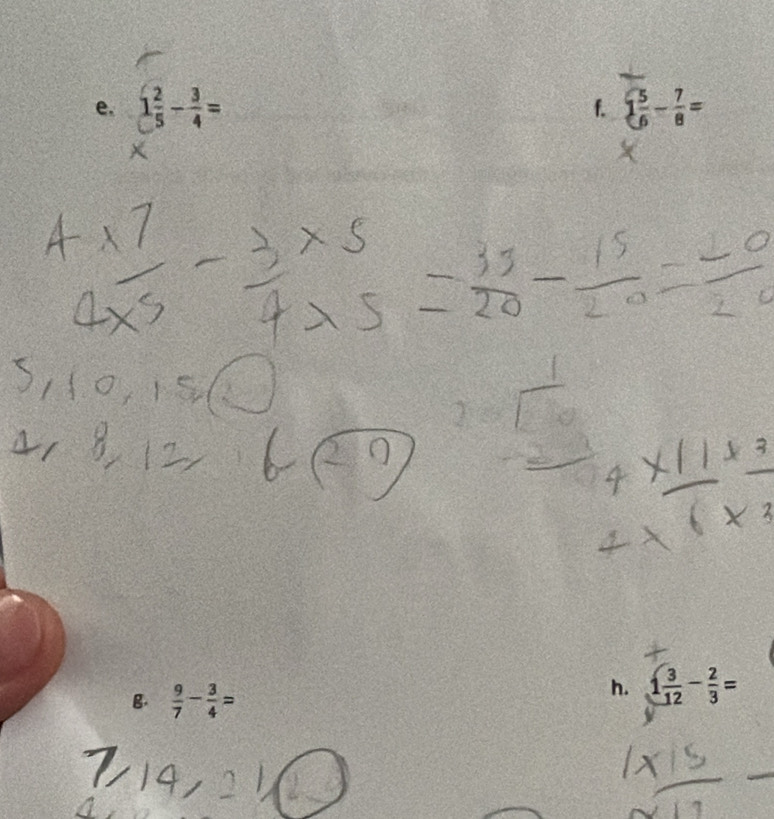 e. 1 2/5 - 3/4 =
f. 1 5/6 - 7/8 =
4 × 7 / 4 × 5 - 3 × 5 / 4 × 5 = 33/20 - 15/20 = 20/20
5, 10, 15
4, 8, 12, 16 20
1
4 × 11 × 3
4 × 6 × 3
g. 9/7 - 3/4 =
h. 1 3/12 - 2/3 =
7, 14, 21,
1 × 15 -